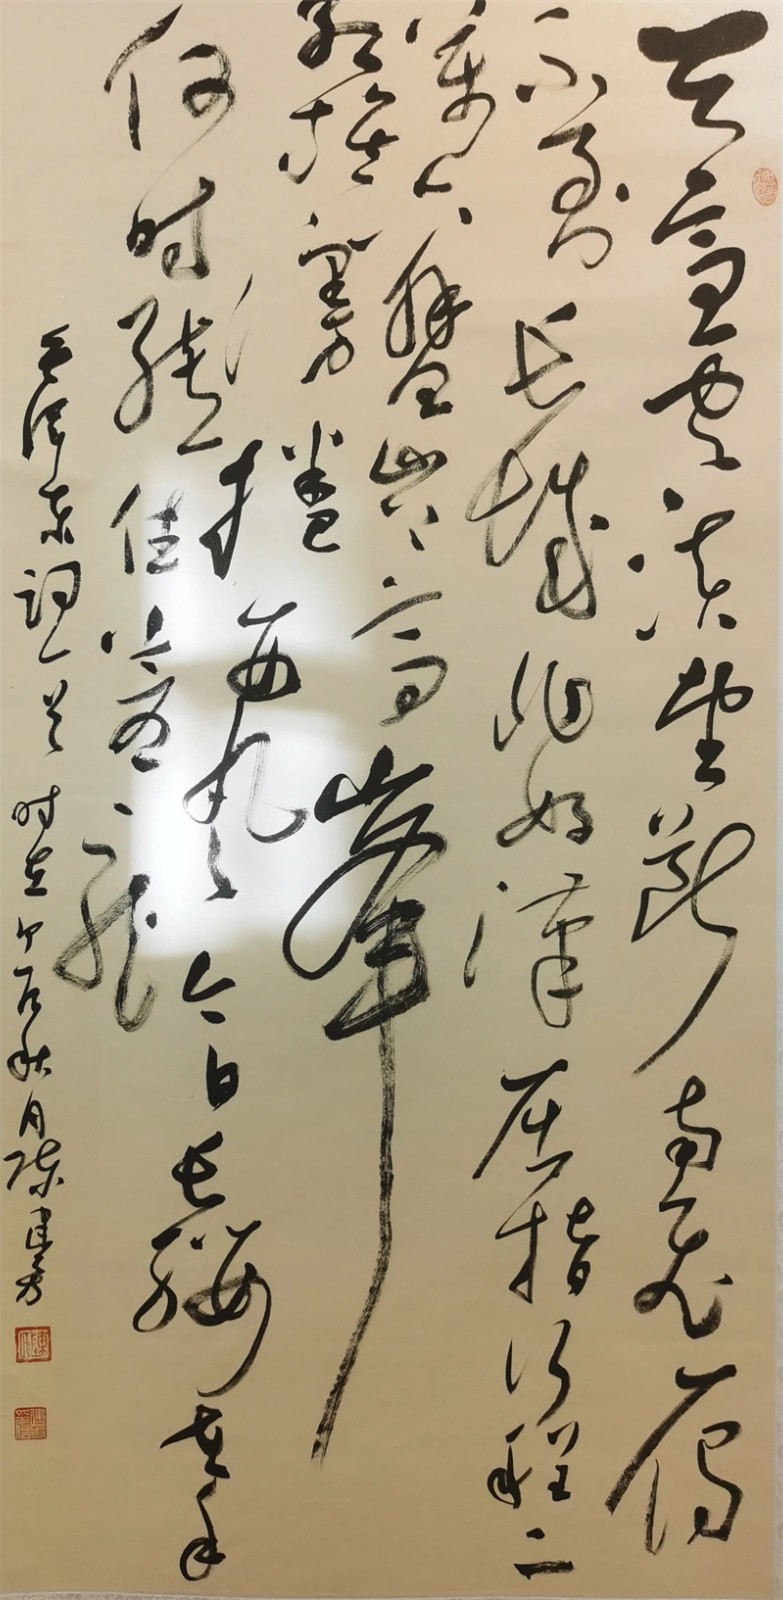 天高云淡望断南飞雁
不到长城非好汉屈指行程二
万六盘山上高峰
红旗漫捲西风今日长缨在手
何时缚住苍龙
毛泽东词一首 时在酉秋月陈建